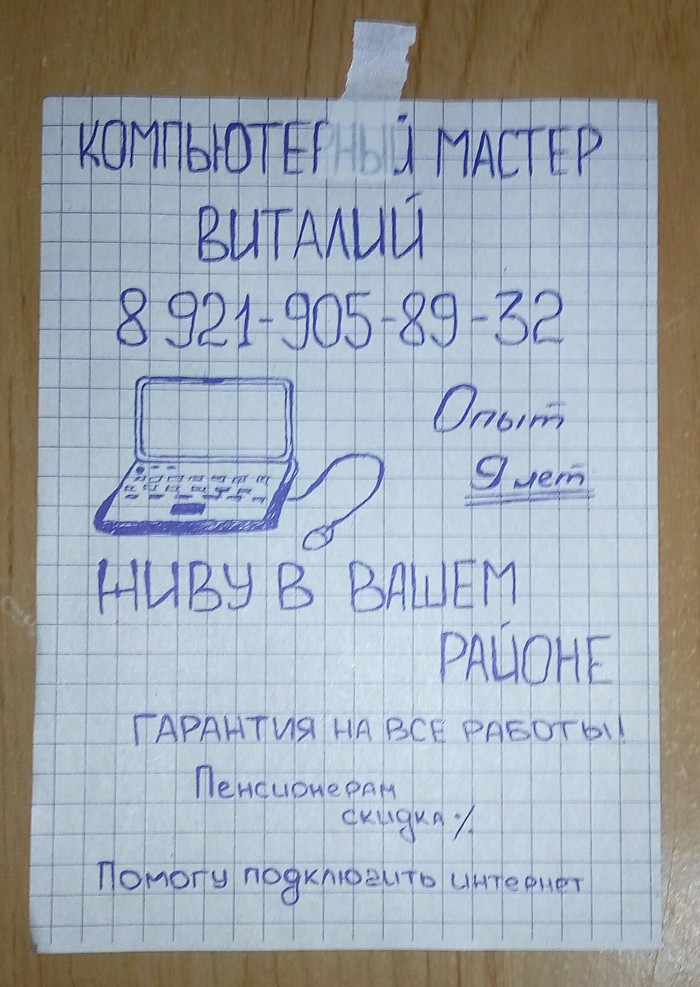 КОМПЬЮТЕРНЫЙ МАСТЕР
ВИТАЛИЙ
8 921-905-89-32
Опыт
9 лет
ЖИВУ В ВАШЕМ
РАЙОНЕ
ГАРАНТИЯ НА ВСЕ РАБОТЫ!
Пенсионерам
скидка %
Помогу подключить интернет